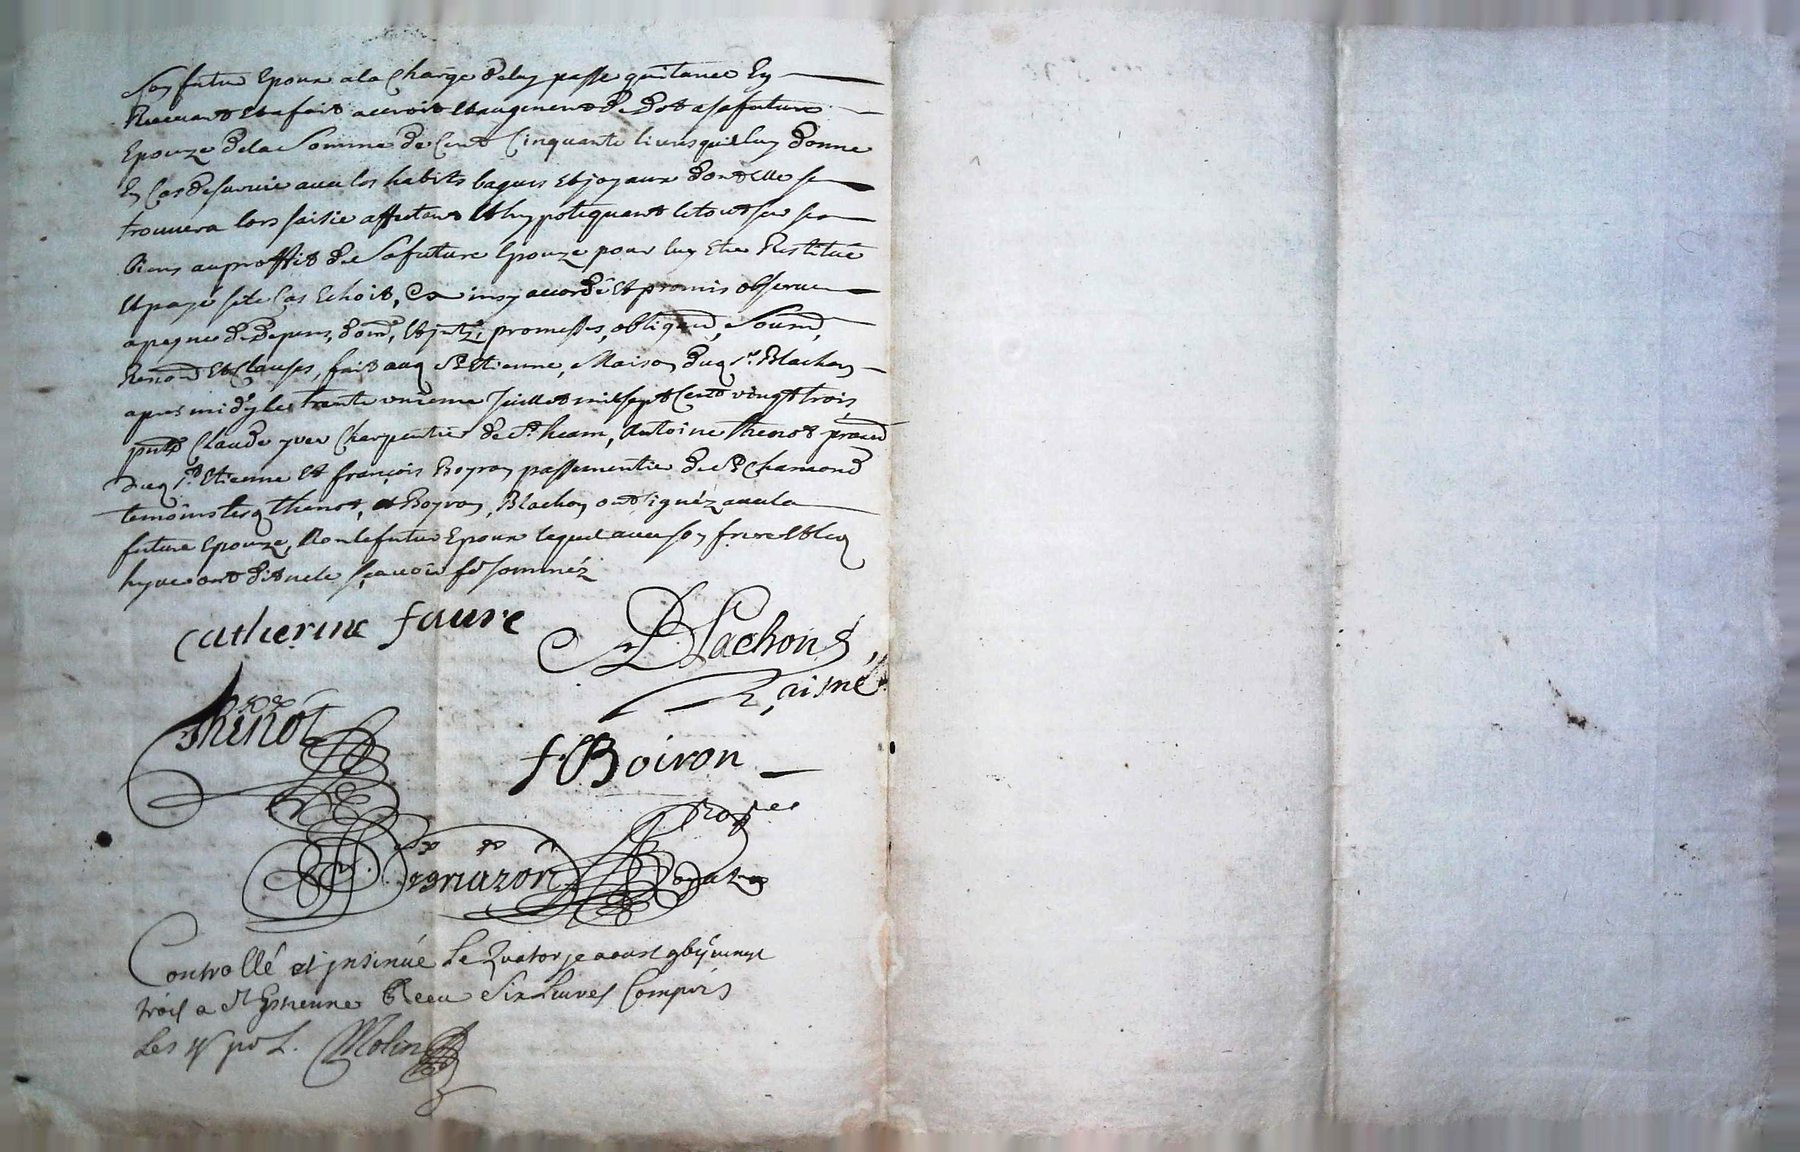 Son futur Epoux a la Charge de luy passe quitance En
Recevant Et a fait accroit Et augment de dot a sa future
Epouze de la Somme de Cent Cinquante livres qu'il luy donne
En Cas de survie avec les habits bagues Et joyaux dont elle se
trouvera lors saisie affectant Et hypotequant le tout sur ses
Biens au proffit de Sa future Epouze pour luy Etre Restitué
Et payé si le Cas Echoit, Ca insy accordé Et promis observer
a peyne de Depens, dom, Et intz, promesses, obligaõn, Soumõn,
Renoõn Et Clauses, fait aud St Etienne, Maison dud Sr Blachon
apres midy le trente unieme Juillet mil sept Cent vingt trois,
pnts Claude yver Charpentier de St heam, Antoine Thenot praticn
dud St Etienne Et françois Boyron passementier de St Chamond
temoins lesd Thenot, et Boyron, Blachon ont signéz avec la
future Epouze, Non le futur Epoux lequel avec son frere Et led
hyver ont dit ne le sçavoir de ce sommez
Catherine faure
Blachon
L'aisné
Thenot
f Boiron
Roya
Controllé et jnsinué Le Quatorze aoust gbij vingt
trois a St Estienne Reçu Six Livres Compris
Les 4s pr L. Molin